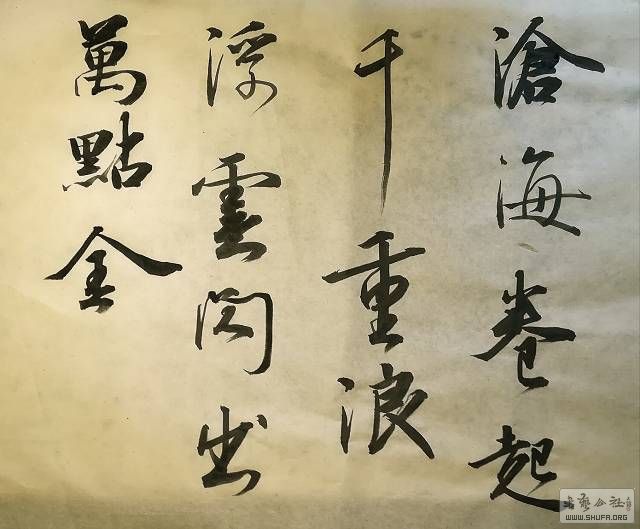 滄海卷起
千重浪
浮雲閃出
萬點金
书艺公社
WWW.SHUFA.ORG